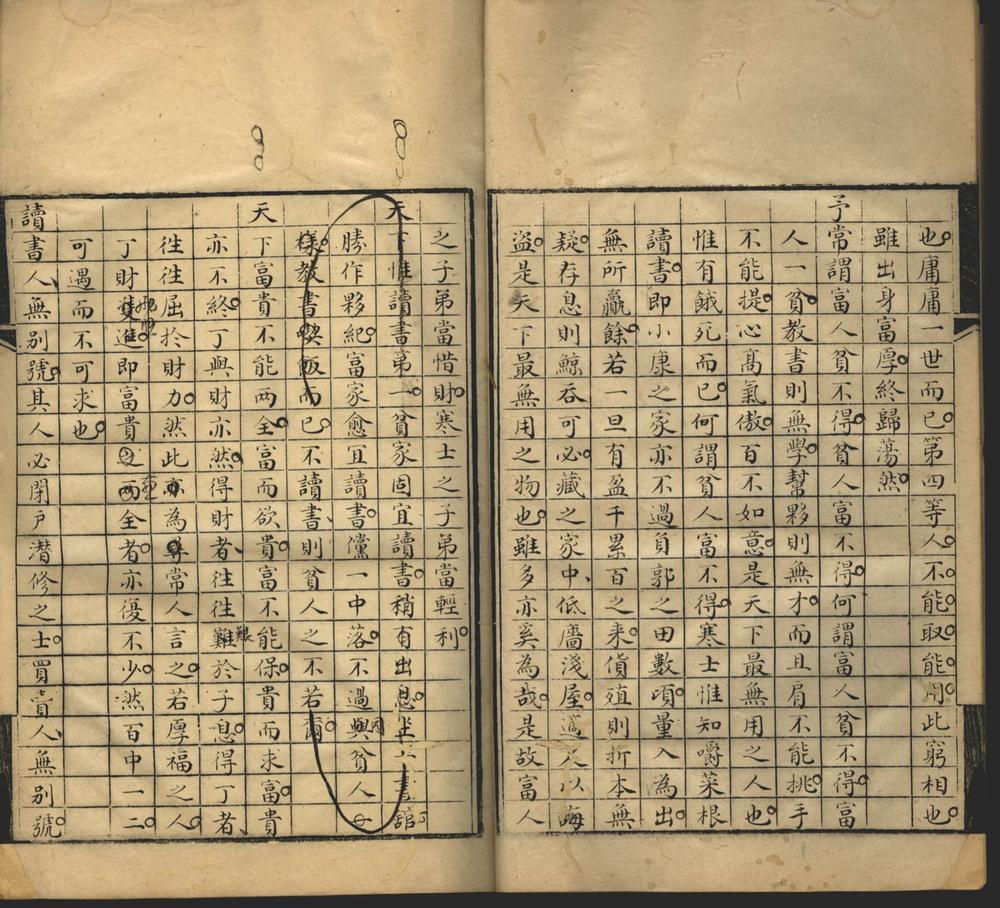 也庸庸一世而已第四等人不能取能用此窮相也
雖出身富厚終歸蕩然
予常謂富人貧不得貧人富不得何謂富人貧不得富
人一貧教書則無學幫夥則無才而且肩不能挑手
不能提心高氣傲百不如意是天下最無用之人也
惟有餓死而已何謂貧人富不得寒士惟知嚼菜根
讀書即小康之家亦不過負郭之田數頃量入為出
無所贏餘若一旦有盈千累百之来貨殖則折本無
疑存息則鯨吞可必藏之家中低牆淺屋適足以誨
盜是天下最無用之物也雖多亦奚為哉是故富人
之子弟當惜財寒士之子弟當輕利
天下惟讀書第一貧家固宜讀書稍有出息坐書館
勝作夥紀富家愈宜讀書儻一中落不過與貧人一
樣教書喫飯而已不讀書則貧人之不若爾
天下富貴不能两全富而欲貴富不能保貴而求富貴
亦不終丁與財亦然得財者往往難艱於子息得丁者
往往屈於財力然此為尋常人言之若厚福之人
丁財並進即富貴两全者亦復不少然百中一二
可遇而不可求也
讀書人無別號其人必閉戶潜修之士買賣人無別號